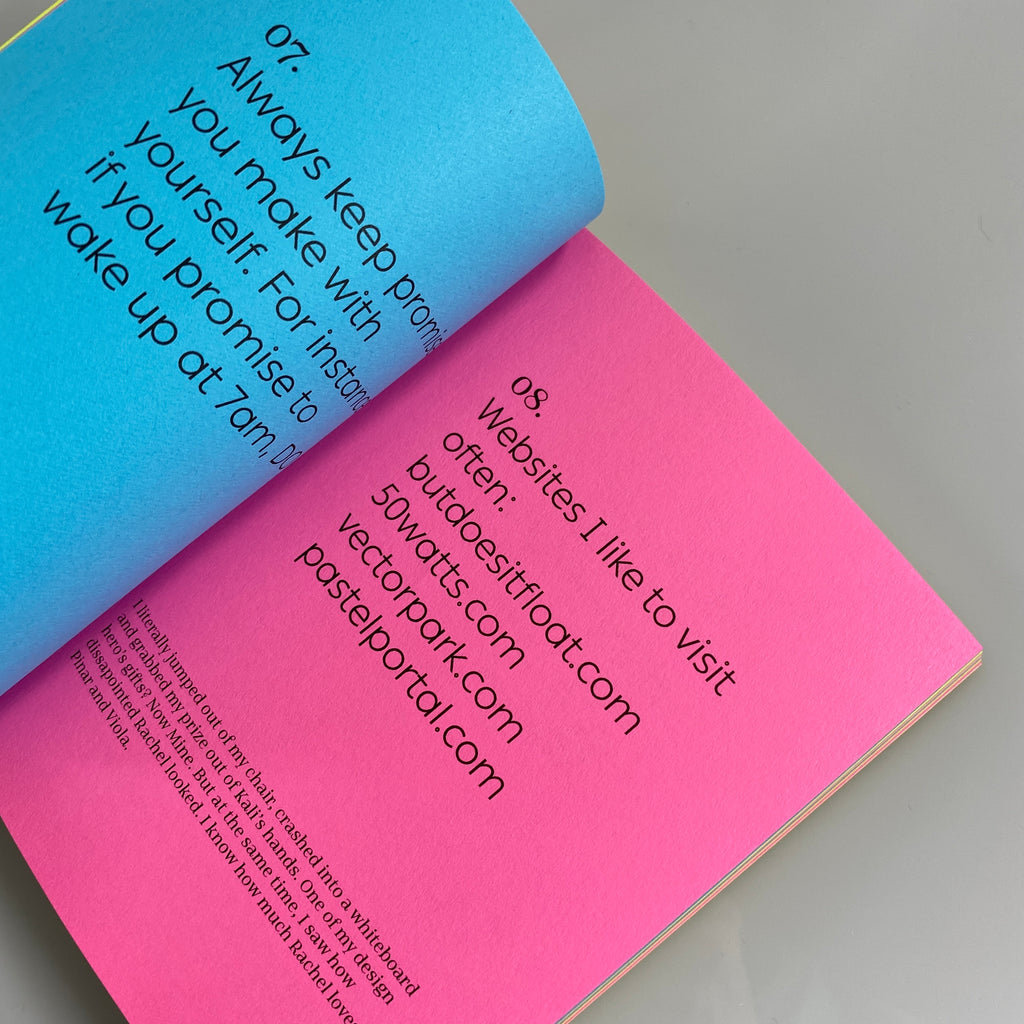 07.
Always keep promis
you make with
yourself. For instanc
if you promise to
wake up at 7am, do
08.
Websites I like to visit
often:
butdoesitfloat.com
50watts.com
vectorpark.com
pastelportal.com
I literally jumped out of my chair, crashed into a whiteboard
and grabbed my prize out of Kali's hands. One of my design
hero's gifts? Now Mine. But at the same time, I saw how
dissapointed Rachel looked. I know how much Rachel love
Pinar and Viola.